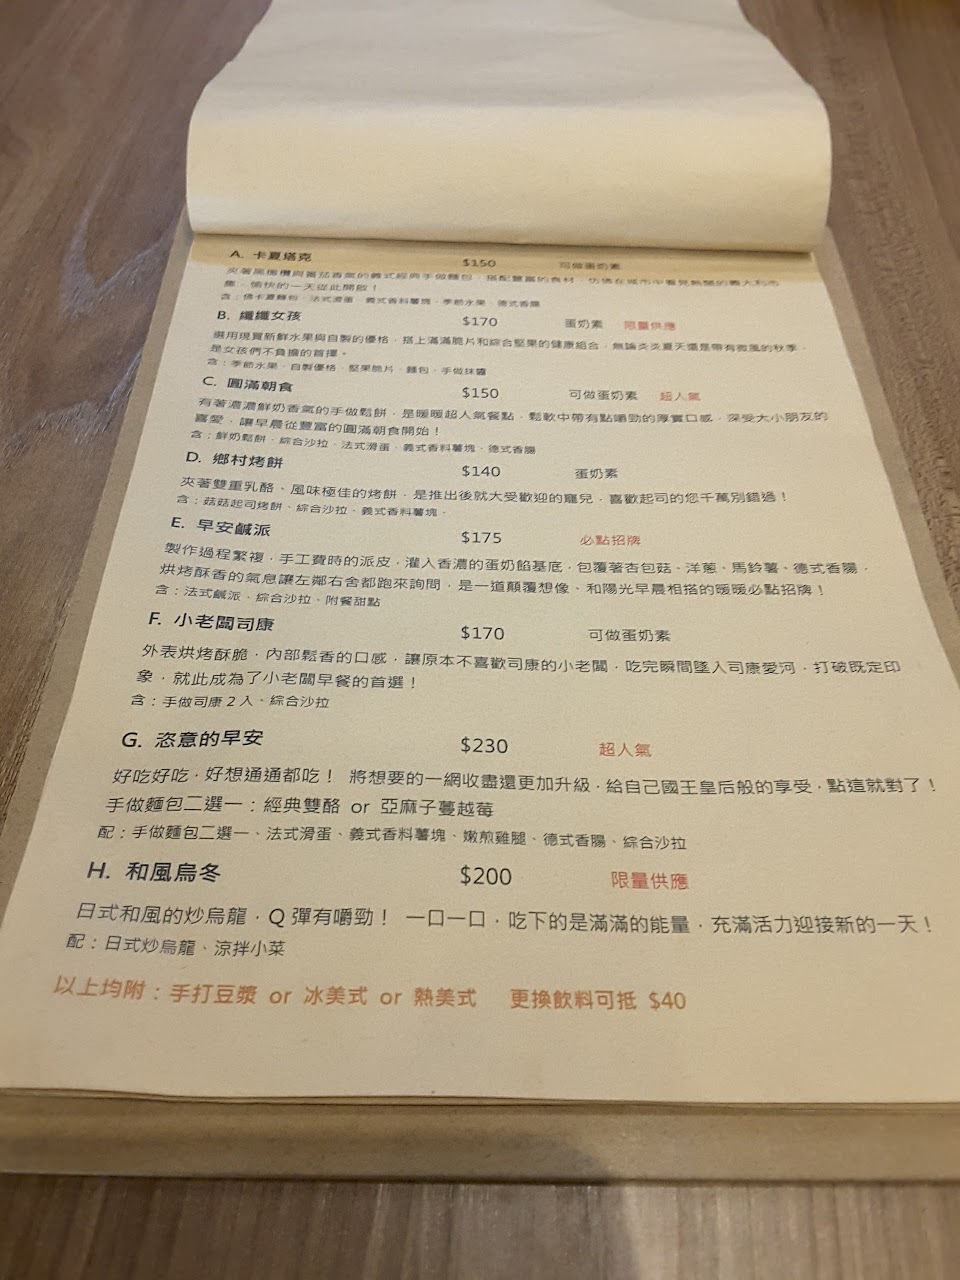 A. 卡夏塔克 $150 可做蛋奶素
夾著黑橄欖與番茄香氣的義式經典手做麵包，搭配豐富的食材，仿佛在城市中看見熱鬧的義大利市
集，愉快的一天從此開啟！
含：佛卡夏麵包、法式滑蛋、義式香料薯塊、季節水果、德式香腸
B. 纖纖女孩 $170 蛋奶素 限量供應
選用現買新鮮水果與自製的優格，搭上滿滿脆片和綜合堅果的健康組合，無論炎炎夏天還是帶有微風的秋季，
是女孩們不負擔的首擇。
含：季節水果、自製優格、堅果脆片、麵包、手做抹醬
C. 圓滿朝食 $150 可做蛋奶素 超人氣
有著濃濃鮮奶香氣的手做鬆餅，是暖暖超人氣餐點，鬆軟中帶有點嚼勁的厚實口感，深受大小朋友的
喜愛，讓早晨從豐富的圓滿朝食開始！
含：鮮奶鬆餅、綜合沙拉、法式滑蛋、義式香料薯塊、德式香腸
D. 鄉村烤餅 $140 蛋奶素
夾著雙重乳酪、風味極佳的烤餅，是推出後就大受歡迎的寵兒，喜歡起司的您千萬別錯過！
含：菇菇起司烤餅、綜合沙拉、義式香料薯塊．
E. 早安鹹派 $175 必點招牌
製作過程繁複，手工費時的派皮，灌入香濃的蛋奶餡基底，包覆著杏包菇、洋蔥、馬鈴薯、德式香腸，
烘烤酥香的氣息讓左鄰右舍都跑來詢問，是一道顛覆想像、和陽光早晨相搭的暖暖必點招牌！
含：法式鹹派、綜合沙拉、附餐甜點
F. 小老闆司康 $170 可做蛋奶素
外表烘烤酥脆，內部鬆香的口感，讓原本不喜歡司康的小老闆，吃完瞬間墜入司康愛河，打破既定印
象，就此成為了小老闆早餐的首選！
含：手做司康2入、綜合沙拉
G. 恣意的早安 $230 超人氣
好吃好吃，好想通通都吃！ 將想要的一網收盡還更加升級，給自己國王皇后般的享受，點這就對了！
手做麵包二選一：經典雙酪 or 亞麻子蔓越莓
配：手做麵包二選一、法式滑蛋、義式香料薯塊、嫩煎雞腿、德式香腸、綜合沙拉
H. 和風烏冬 $200 限量供應
日式和風的炒烏龍，Q彈有嚼勁！ 一口一口，吃下的是滿滿的能量，充滿活力迎接新的一天！
配：日式炒烏龍、涼拌小菜
以上均附：手打豆漿 or 冰美式 or 熱美式 更換飲料可抵 $40